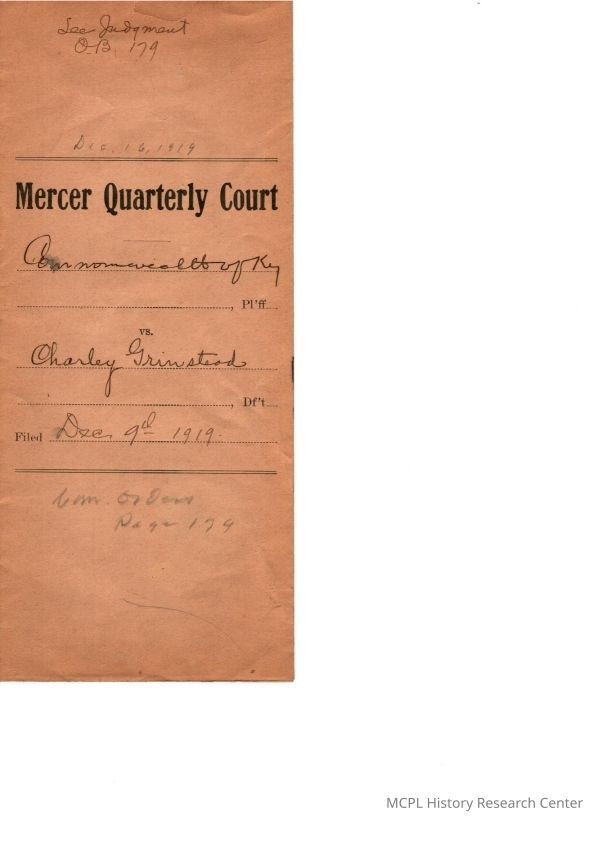 See Judgment
O.B. 179
Dec. 16, 1919
Mercer Quarterly Court
Commonwealth of Ky
, Pl'ff.
vs.
Charley Grinstead
, Df't
Filed Dec 9th 1919.
Com. Orders
Page 179
MCPL History Research Center